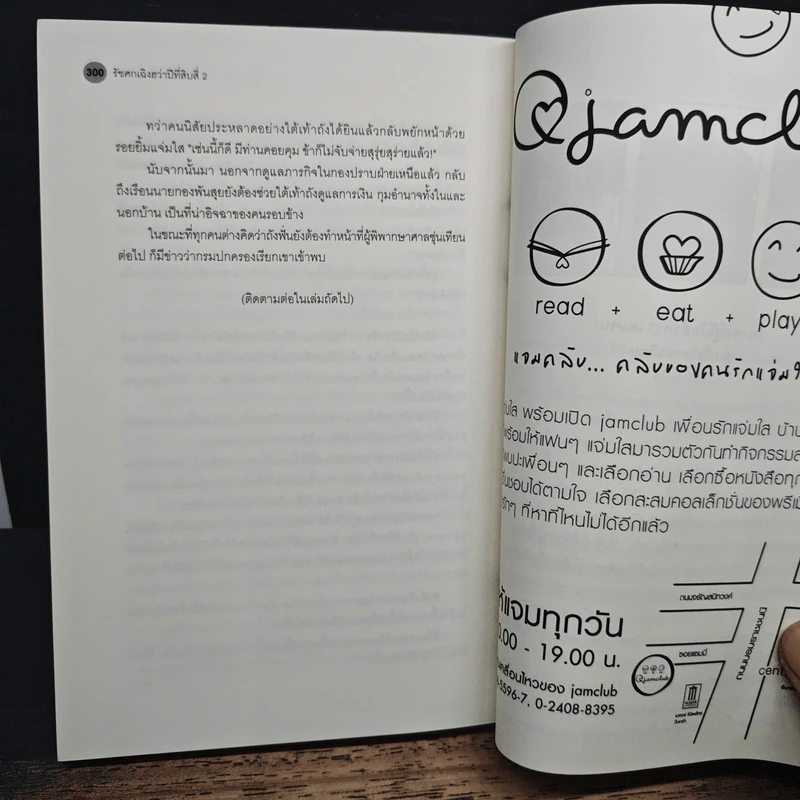 300 รัชศกเฉิงฮว่าปีที่สิบสี่ 2
ทว่าคนนิสัยประหลาดอย่างใต้เท้าถังได้ยินแล้วกลับพยักหน้าด้วย
รอยยิ้มแจ่มใส "เช่นนี้ก็ดี มีท่านคอยคุม ข้าก็ไม่จับจ่ายสุรุ่ยสุร่ายแล้ว!"
นับจากนั้นมา นอกจากดูแลภารกิจในกองปราบฝ่ายเหนือแล้ว กลับ
ถึงเรือนนายกองพันสุยยังต้องช่วยใต้เท้าถังดูแลการเงิน กุมอำนาจทั้งในและ
นอกบ้าน เป็นที่น่าอิจฉาของคนรอบข้าง
ในขณะที่ทุกคนต่างคิดว่าถังฟั่นยังต้องทำหน้าที่ผู้พิพากษาศาลซุ่นเทียน
ต่อไป ก็มีข่าวว่ากรมปกครองเรียกเขาเข้าพบ
(ติดตามต่อในเล่มถัดไป)
@jamcl
read + eat + play
แจมคลับ... คลับของคนรักแจ่มใ
พร้อมเปิด jamclub เพื่อนรักแจ่มใส
ให้แฟนๆ แจ่มใสมารวมตัวกันทำกิจกรรม
เพื่อนๆ และเลือกอ่าน เลือกซื้อหนังสือทุก
ชอบได้ตามใจ เลือกสะสมคอลเล็กชั่นของพรีเมี
ที่หาที่ไหนไม่ได้อีกแล้ว
ถนนจรัญสนิทวงศ์
แจมทุกวัน
.00 - 19.00 น.
ซอยแชมมี่
ถนนบรมราชชนนี
cent
@jamclub
เคลื่อนไหวของ jamclub
-5596-7, 0-2408-8395